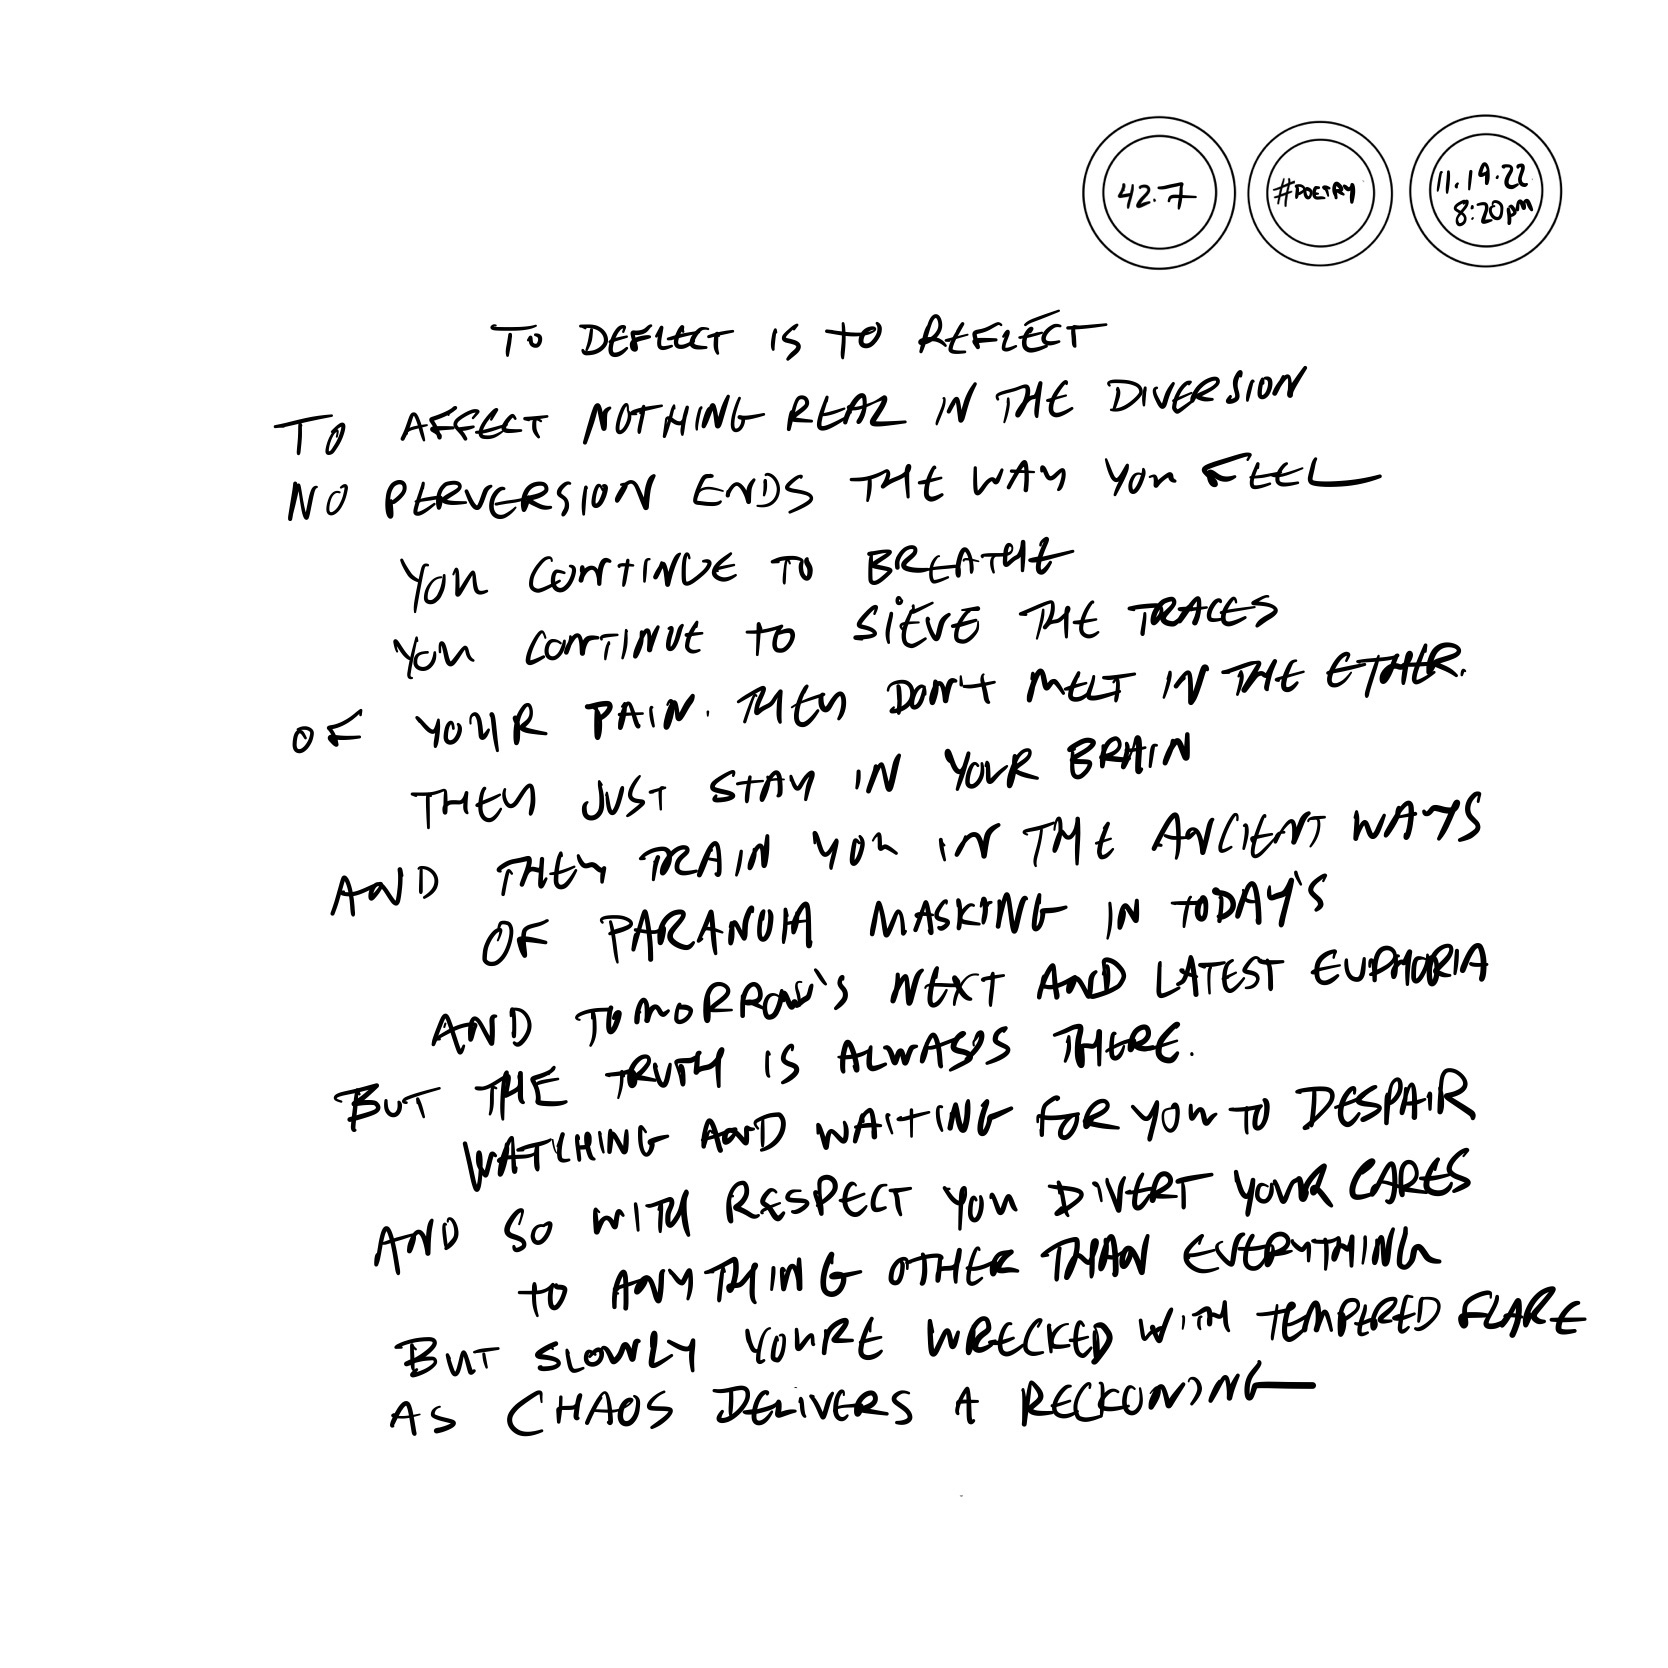 42.7
#POETRY
11.19.22
8:20pm
TO DEFLECT IS TO REFLECT
TO AFFECT NOTHING REAL IN THE DIVERSION
NO PERVERSION ENDS THE WAY YOU FEEL
YOU CONTINUE TO BREATHE
YOU CONTINUE TO SIEVE THE TRACES
OF YOUR PAIN. THEY DON'T MELT IN THE ETHER.
THEY JUST STAY IN YOUR BRAIN
AND THEY TRAIN YOU IN THE ANCIENT WAYS
OF PARANOIA MASKING IN TODAY'S
AND TOMORROW'S NEXT AND LATEST EUPHORIA
BUT THE TRUTH IS ALWAYS THERE.
WATCHING AND WAITING FOR YOU TO DESPAIR
AND SO WITH RESPECT YOU DIVERT YOUR CARES
TO ANYTHING OTHER THAN EVERYTHING
BUT SLOWLY YOURE WRECKED WITH TEMPERED FLARE
AS CHAOS DELIVERS A RECKONING